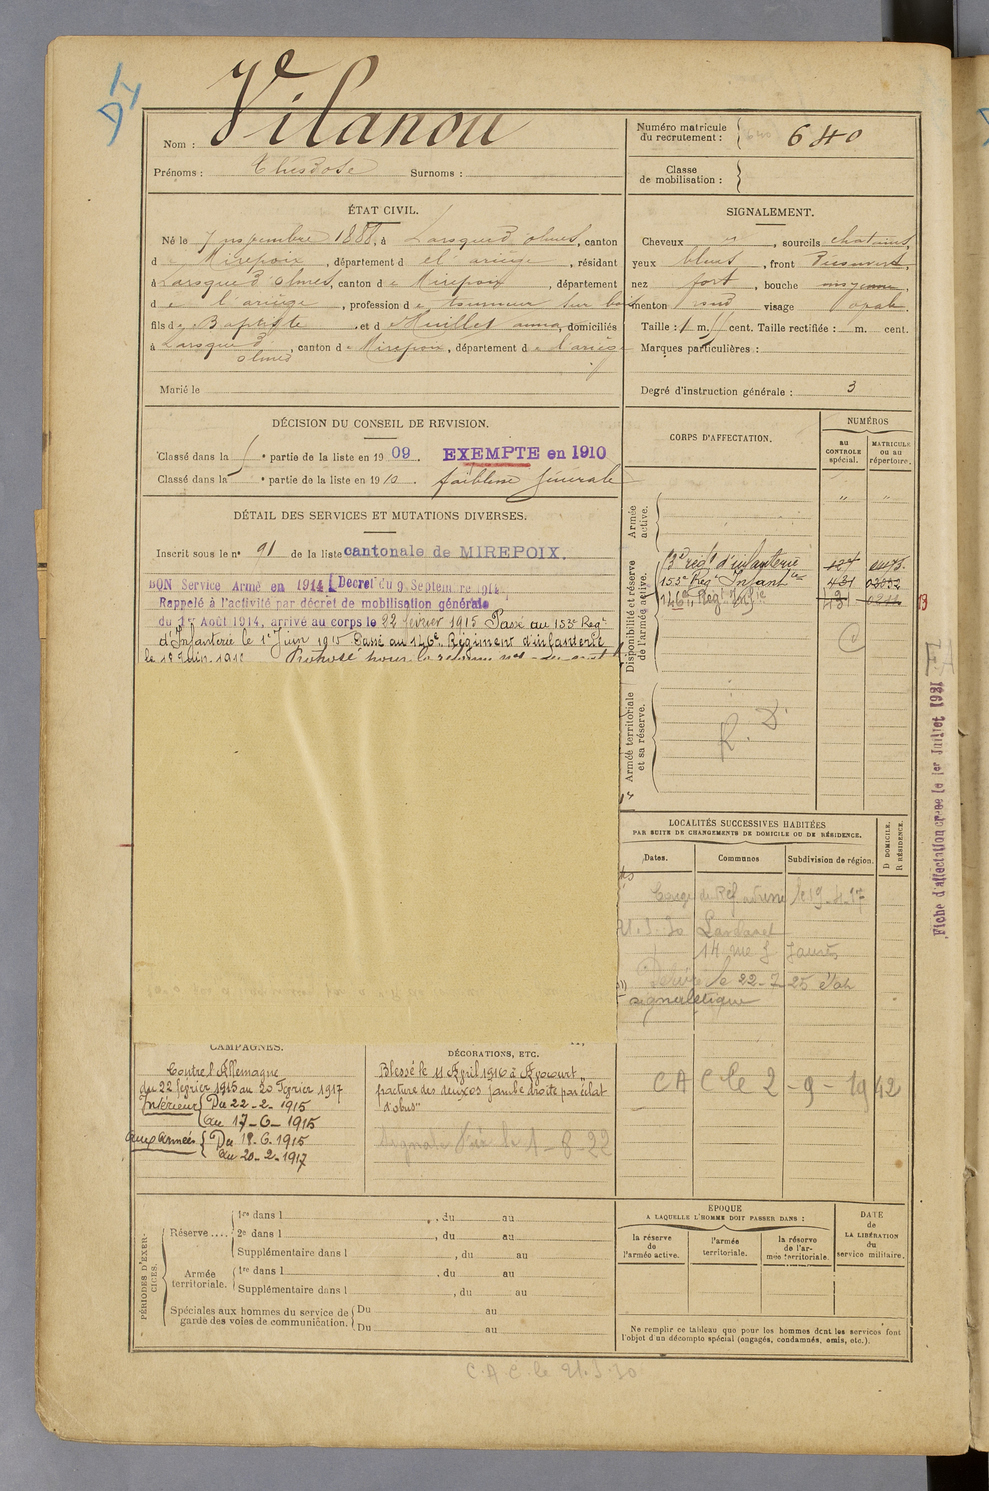 Vilanou
Nom :
Prénoms : Théodose Surnoms :
Numéro matricule du recrutement : 640
Classe de mobilisation :
ÉTAT CIVIL.
Né le 7 novembre 1888, à Laroque d'olmes, canton
de Mirepoix, département de l'ariège, résidant
à Laroque d'olmes, canton de Mirepoix, département
de l'ariège, profession de tourneur sur bois
fils de Baptiste et de anna, domiciliés
à Laroque d'olmes, canton de Mirepoix, département de l'ariège
Marié le
SIGNALEMENT.
Cheveux , sourcils chatains,
yeux bleus, front Découvert,
nez fort, bouche moyenne,
menton rond visage ovale.
Taille : 1 m. cent. Taille rectifiée : m. cent.
Marques particulières :
Degré d'instruction générale : 3
DÉCISION DU CONSEIL DE REVISION.
Classé dans la e partie de la liste en 1909. EXEMPTE en 1910
Classé dans la e partie de la liste en 1910. faiblesse générale
DÉTAIL DES SERVICES ET MUTATIONS DIVERSES.
Inscrit sous le no 91 de la liste cantonale de MIREPOIX.
BON Service Armé en 1914 [Décret du 9 Septembre 1914
Rappelé à l'activité par décret de mobilisation générale
du 1er Août 1914, arrivé au corps le 22 février 1915 Passé au 153e Regt
d'Infanterie le 1er Juin 1915 Passé au 146e Régiment d'infanterie
le 18 Juin 1915 Proposé pour la
CORPS D'AFFECTATION.
NUMÉROS
au CONTROLE spécial.
MATRICULE ou au répertoire.
Armée active.
" "
Disponibilité et réserve de l'armée active.
regt d'infanterie
153e Reg. Infantie 431
146e Regt Infie 431
C
Armée territoriale et sa réserve.
R. D.
Fiche d'affectation créée le 1er Juillet 1931
LOCALITÉS SUCCESSIVES HABITÉES
PAR SUITE DE CHANGEMENTS DE DOMICILE OU DE RÉSIDENCE.
Dates.
Communes
Subdivision de région.
D DOMICILE.
R RÉSIDENCE.
Congé de Réf le 19-4-17
21-3-30 Lavelanet
14 rue J Jaurès
le 22-7-25 état
signalétique
C A C le 2-9-1942
CAMPAGNES.
Contre l'Allemagne
du 22 février 1915 au 20 février 1917
Intérieur { Du 22-2-1915
au 17-6-1915
aux Armées { Du 18.6.1915
au 20-2-1917
DÉCORATIONS, ETC.
Blessé le 11 Avril 1916 à
"fracture des deux os jambe droite par éclat
d'obus"
le 1-8-22
PÉRIODES D'EXERCICES.
Réserve ....
1re dans l , du au
2e dans l , du au
Supplémentaire dans l , du au
Armée territoriale.
1re dans l , du au
Supplémentaire dans l , du au
Spéciales aux hommes du service de garde des voies de communication.
Du au
Du au
EPOQUE
A LAQUELLE L'HOMME DOIT PASSER DANS :
la réserve de l'armée active.
l'armée territoriale.
la réserve de l'armée territoriale.
DATE de LA LIBÉRATION du service militaire.
Ne remplir ce tableau que pour les hommes dont les services font
l'objet d'un décompte spécial (engagés, condamnés, omis, etc.).
C.A.C. le 21.3.30